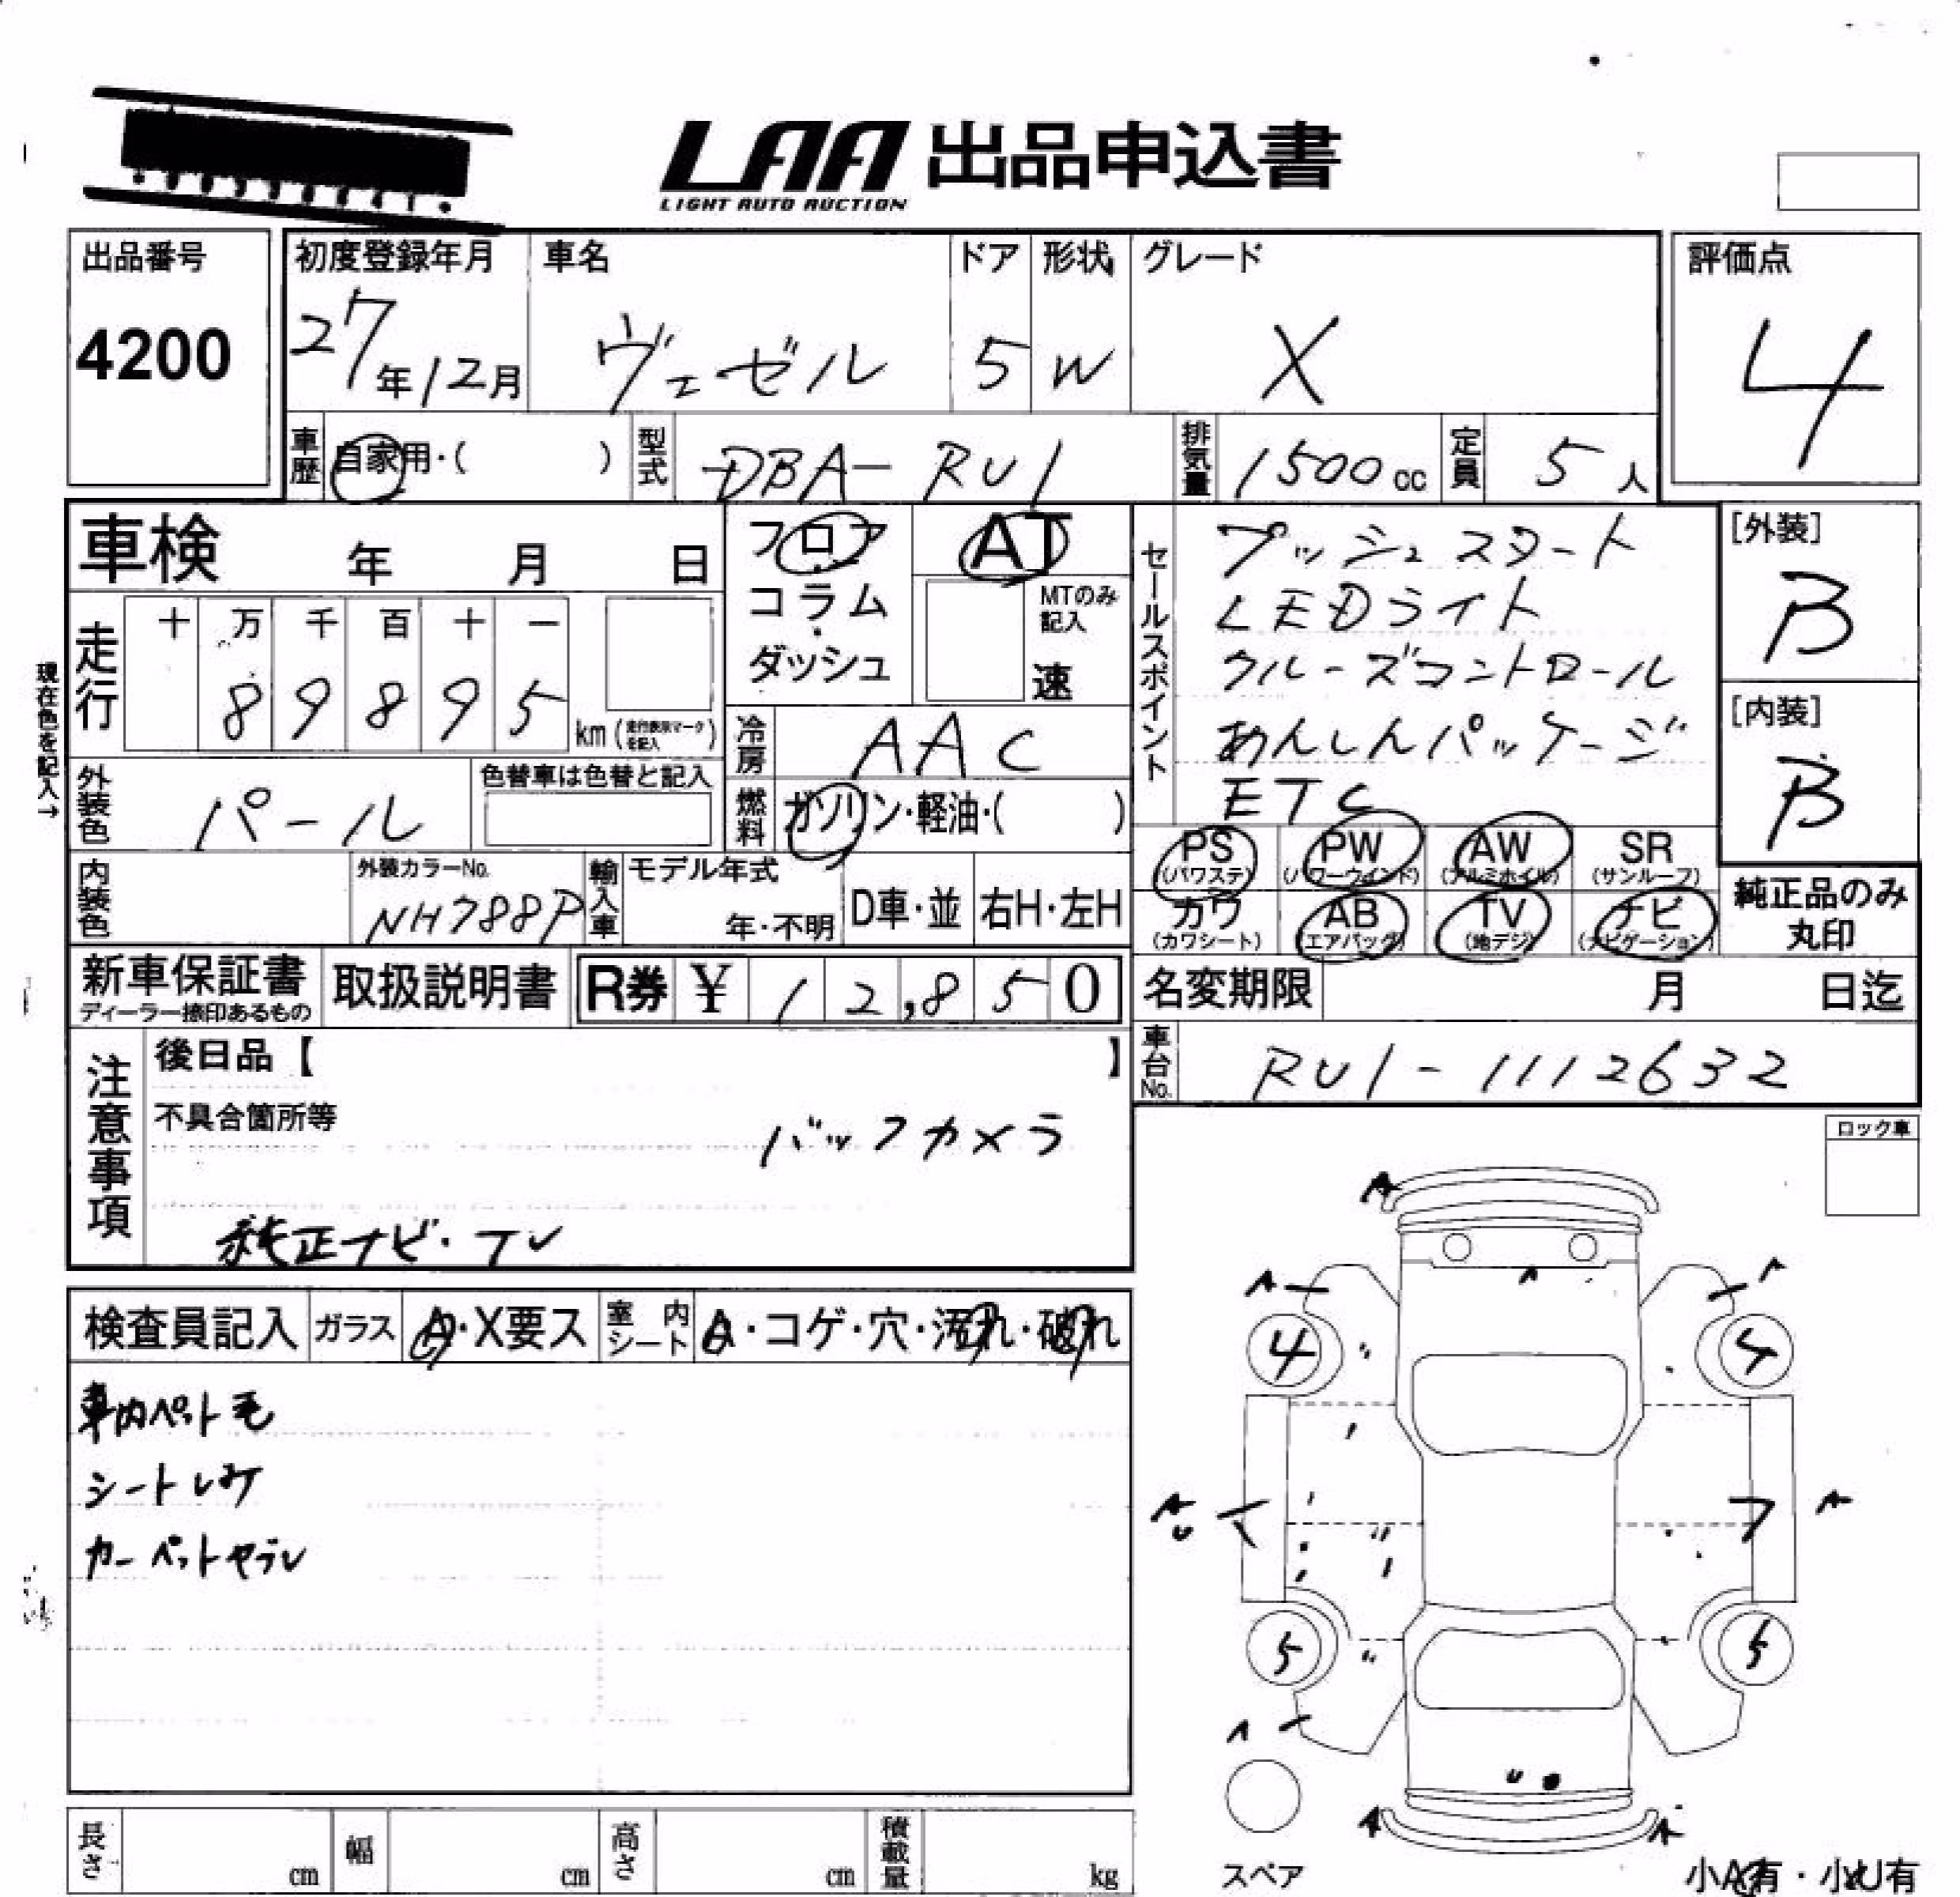 LAA 出品申込書
LIGHT AUTO AUCTION
出品番号
4200
初度登録年月
27年12月
車名
ヴェゼル
ドア
5
形状
W
グレード
X
評価点
4
車歴 自家用・( )
型式 DBA-RU1
排気量 1500cc
定員 5人
車検 年 月 日
フロア・コラム・ダッシュ
AT
MTのみ記入
速
セールスポイント
プッシュスタート
LEDライト
クルーズコントロール
あんしんパッケージ
ETC
[外装]
B
[内装]
B
現在色を記入→
走行
十 万 千 百 十 一
8 9 8 9 5
km (走行表示マークを記入)
冷房 AAC
燃料 ガソリン・軽油・( )
外装色 パール
色替車は色替と記入
内装色
外装カラーNo.
NH788P
輸入車
モデル年式
年・不明
D車・並
右H・左H
PS (パワステ)
PW (パワーウィンド)
AW (アルミホイル)
SR (サンルーフ)
カワ (カワシート)
AB (エアバッグ)
TV (地デジ)
ナビ (ナビゲーション)
純正品のみ
丸印
新車保証書
ディーラー捺印あるもの
取扱説明書
R券 ¥ 12,850
名変期限 月 日迄
車台No. RU1-1112632
注意事項
後日品【 】
不具合箇所等
バックカメラ
純正ナビ・TV
ロック車
検査員記入
ガラス A・X要ス
室内シート A・コゲ・穴・汚れ・破れ
車内ペット毛
シートシミ
カーペットヤブレ
A
A
A
A
4
4
A
U
A
5
5
A
U
A
A
スペア
小A有・小U有
長さ cm
幅 cm
高さ cm
積載量 kg